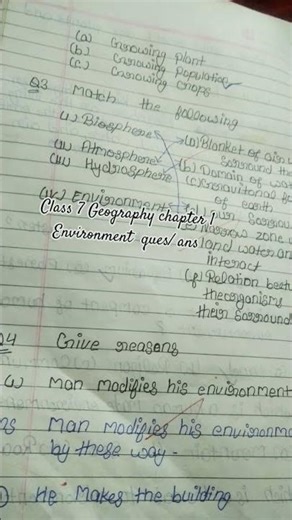 (a) Growing plant
(b) Growing Population
(c) Growing crops
Q3 Match the following
(i) Biosphere (a) Blanket of air
Surround the
(ii) Atmosphere (b) Domain of wat
(iii) Hydrosphere (c) Gravitational fo
of earth
(iv) Environment
Class 7 Geography chapter 1
Environment ques/ans
(e) Narrow zone
land water an
interact
(f) Relation betw
the organisms
their Surround
Q4 Give reasons
(i) Man modifies his environment
Man modifies his environme
by these way -
He Makes the building